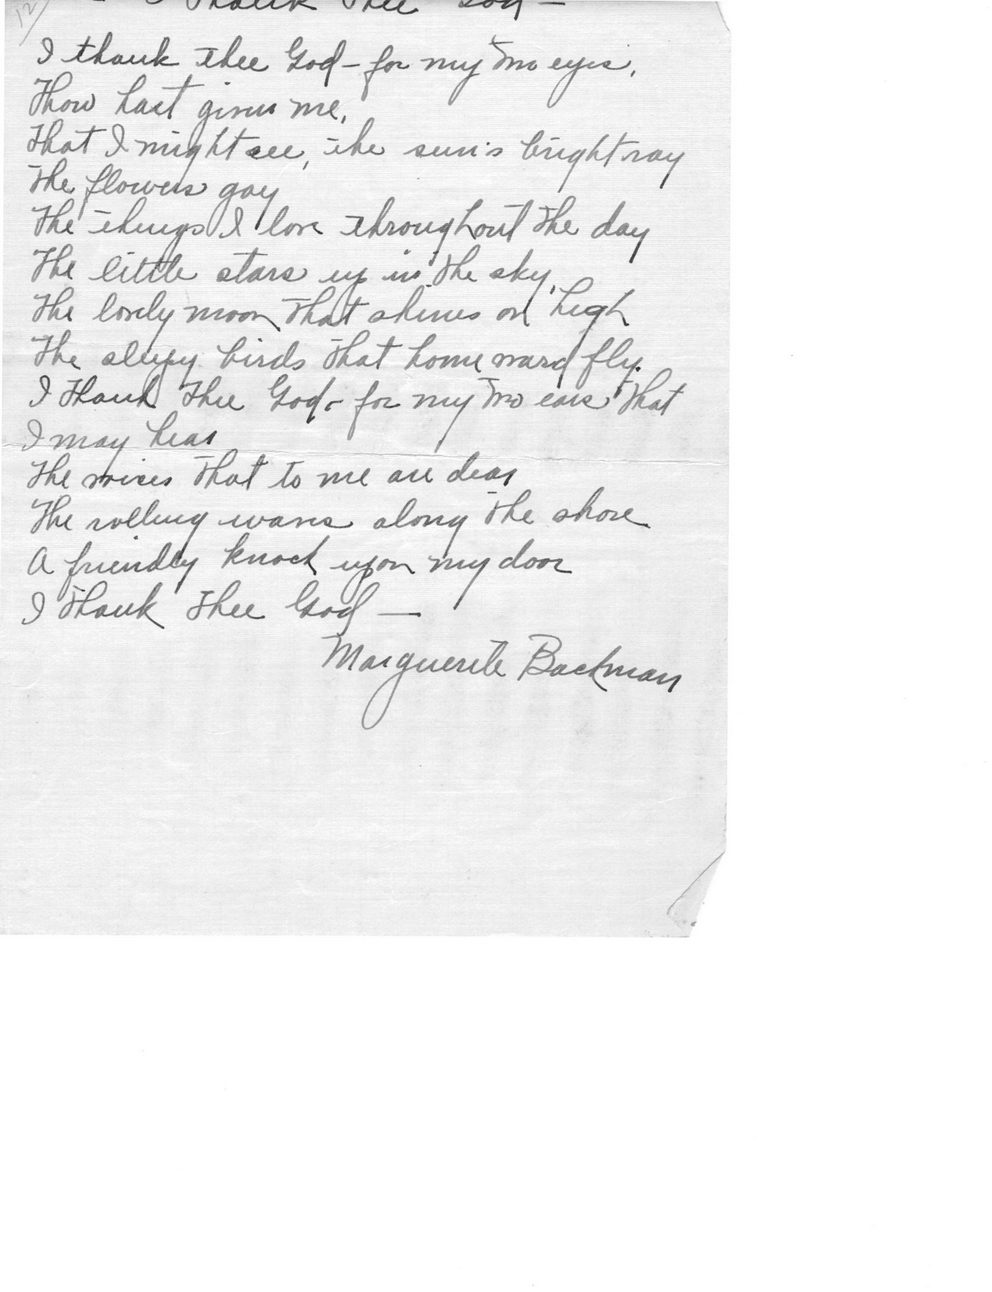 12
I Thank Thee God —
I thank thee God – for my two eyes,
Thou hast given me,
That I might see, the sun's bright ray
The flowers gay
The things I love throughout the day
The little stars up in the sky,
The lovely moon that shines on high
The sleepy birds that homeward fly.
I thank Thee God – for my two ears that
I may hear
The voices that to me are dear
The rolling waves along the shore
A friendly knock upon my door
I thank thee God —
Marguerite Backman